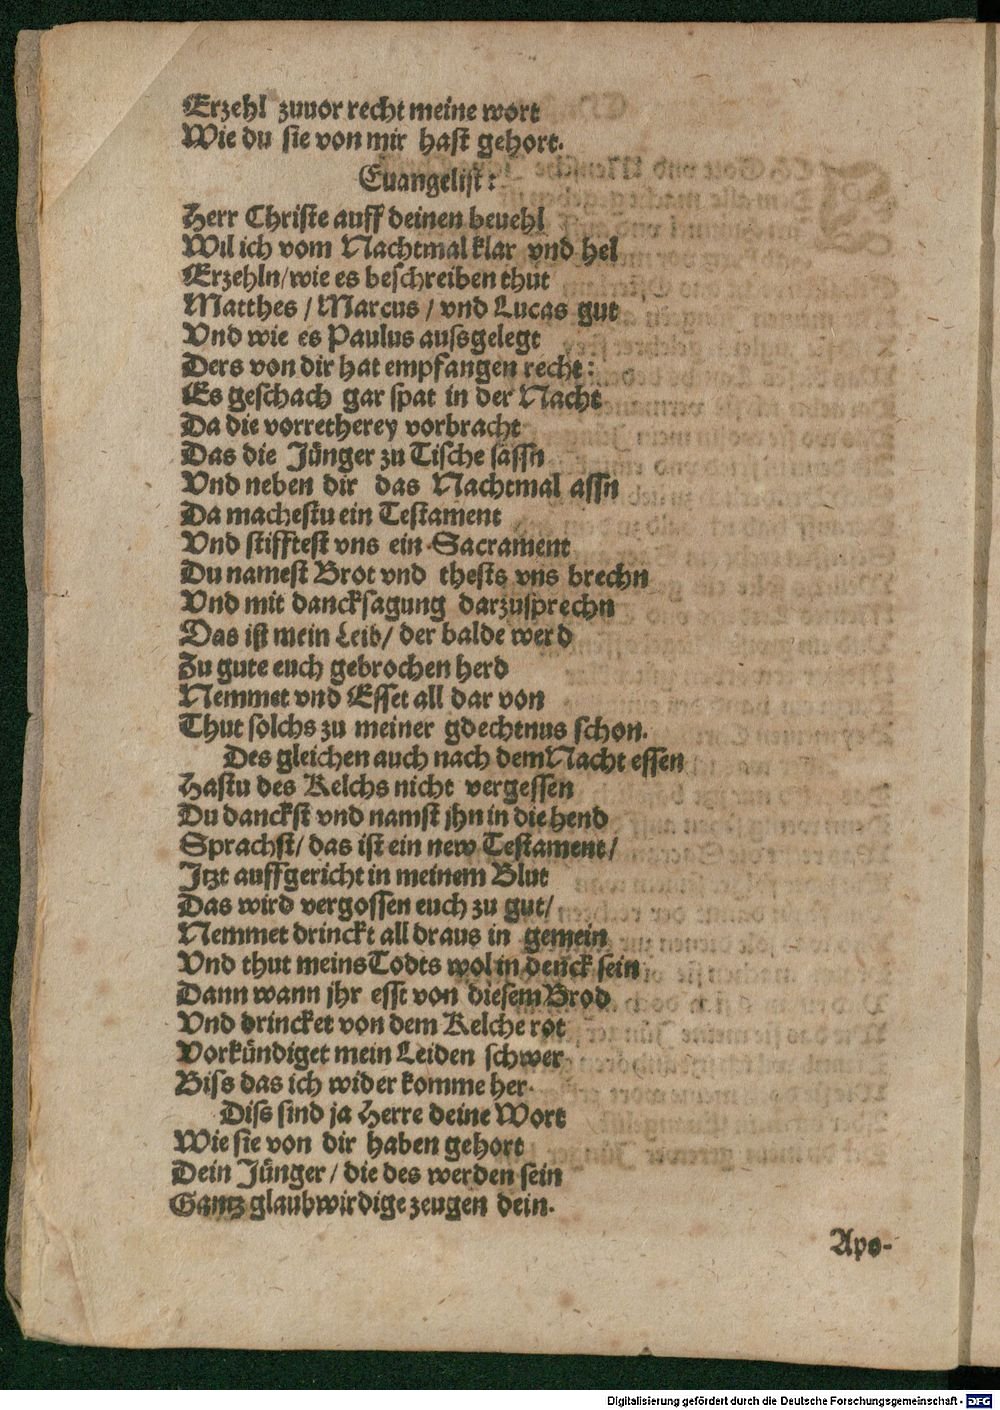 Erzehl zuuor recht meine wort
Wie du sie von mir hast gehort.
Euangelist:
Herr Christe auff deinen beuehl
Wil ich vom Nachtmal klar vnd hel
Erzehln/wie es beschreiben thut
Matthes / Marcus / vnd Lucas gut
Vnd wie es Paulus aussgelegt
Ders von dir hat empfangen recht:
Es geschach gar spat in der Nacht
Da die vorretherey vorbracht
Das die Jünger zu Tische sassn
Vnd neben dir das Nachtmal assn
Da machestu ein Testament
Vnd stifftest vns ein Sacrament
Du namest Brot vnd thests vns brechn
Vnd mit dancksagung darzusprechn
Das ist mein Leib/ der balde werd
Zu gute euch gebrochen herd
Nemmet vnd Esset all dar von
Thut solchs zu meiner gdechtnus schon.
Des gleichen auch nach dem Nacht essen
Hastu des Kelchs nicht vergessen
Du danckst vnd namst jhn in die hend
Sprachst/ das ist ein new Testament/
Jtzt auffgericht in meinem Blut
Das wird vergossen euch zu gut/
Nemmet drinckt all draus in gemein
Vnd thut meins Todts wol in denck sein
Dann wann jhr esst von diesem Brod
Vnd drincket von dem Kelche rot
Vorkündiget mein Leiden schwer
Biss das ich wider komme her.
Diss sind ja Herre deine Wort
Wie sie von dir haben gehort
Dein Jünger / die des werden sein
Gantz glaubwirdige zeugen dein.
Apo-
Digitalisierung gefördert durch die Deutsche Forschungsgemeinschaft - DFG